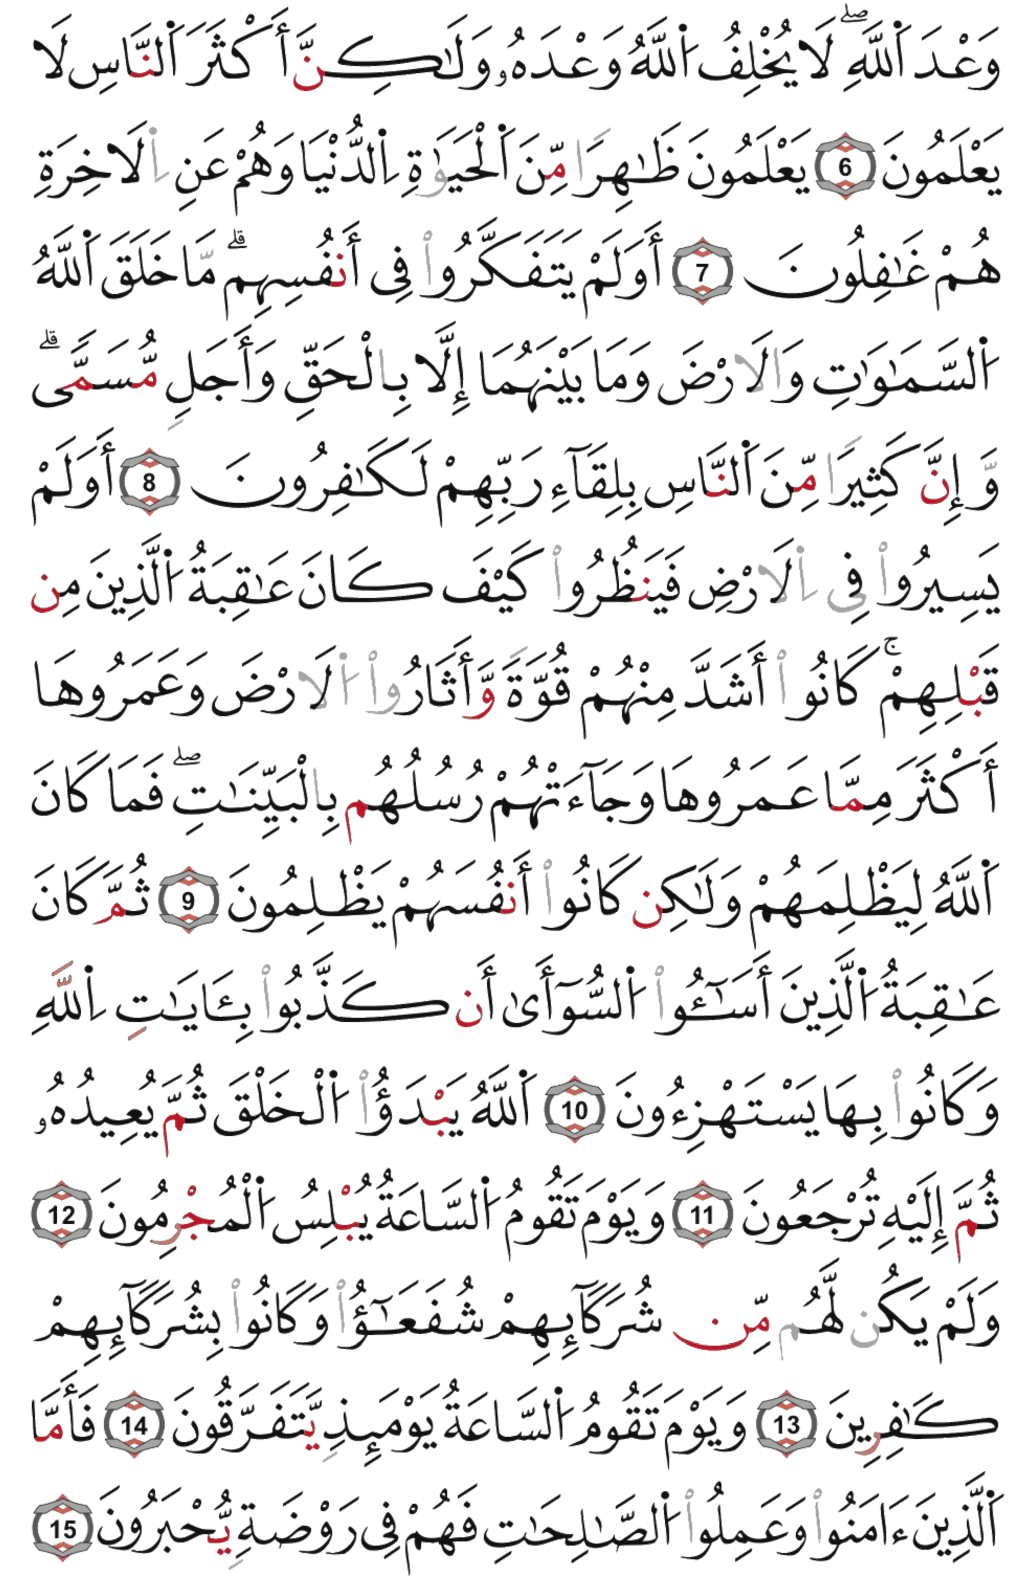 وَعْدَ اَ۬للَّهِۖ لَا يُخْلِفُ اُ۬للَّهُ وَعْدَهُۥ وَلَٰكِنَّ أَكْثَرَ اَ۬لنَّاسِ لَا
يَعْلَمُونَ 6 يَعْلَمُونَ ظَٰهِرًا مِّنَ اَ۬لْحَيَوٰةِ اِ۬لدُّنْيَا وَهُمْ عَنِ اِ۬لَاخِرَةِ
هُمْ غَٰفِلُونَ 7 أَوَلَمْ يَتَفَكَّرُواْ فِى أَنفُسِهِمۗ مَّا خَلَقَ اَ۬للَّهُ
اُ۬لسَّمَٰوَٰتِ وَالَارْضَ وَمَا بَيْنَهُمَا إِلَّا بِالْحَقِّ وَأَجَلٍ مُّسَمًّىۗ
وَّإِنَّ كَثِيرًا مِّنَ اَ۬لنَّاسِ بِلِقَآءِ رَبِّهِمْ لَكَٰفِرُونَ 8 أَوَلَمْ
يَسِيرُواْ فِى اِ۬لَارْضِ فَيَنظُرُواْ كَيْفَ كَانَ عَٰقِبَةُ اُ۬لَّذِينَ مِن
قَبْلِهِمْۚ كَانُواْ أَشَدَّ مِنْهُمْ قُوَّةً وَّأَثَارُواْ اُ۬لَارْضَ وَعَمَرُوهَا
أَكْثَرَ مِمَّا عَمَرُوهَا وَجَآءَتْهُمْ رُسُلُهُم بِالْبَيِّنَٰتِۖ فَمَا كَانَ
اَ۬للَّهُ لِيَظْلِمَهُمْ وَلَٰكِن كَانُواْ أَنفُسَهُمْ يَظْلِمُونَ 9 ثُمَّ كَانَ
عَٰقِبَةُ اُ۬لَّذِينَ أَسَٰٓـُٔواْ اُ۬لسُّوٓأَىٰ أَن كَذَّبُواْ بِـَٔايَٰتِ اِ۬للَّهِ
وَكَانُواْ بِهَا يَسْتَهْزِءُونَ 10 اَ۬للَّهُ يَبْدَؤُاْ اُ۬لْخَلْقَ ثُمَّ يُعِيدُهُۥ
ثُمَّ إِلَيْهِ تُرْجَعُونَ 11 وَيَوْمَ تَقُومُ اُ۬لسَّاعَةُ يُبْلِسُ اُ۬لْمُجْرِمُونَ 12
وَلَمْ يَكُن لَّهُم مِّن شُرَكَآئِهِمْ شُفَعَٰٓؤُاْ وَكَانُواْ بِشُرَكَآئِهِمْ
كَٰفِرِينَ 13 وَيَوْمَ تَقُومُ اُ۬لسَّاعَةُ يَوْمَئِذٍ يَّتَفَرَّقُونَ 14 فَأَمَّا
اَ۬لَّذِينَ ءَامَنُواْ وَعَمِلُواْ اُ۬لصَّٰلِحَٰتِ فَهُمْ فِى رَوْضَةٍ يُّحْبَرُونَ 15